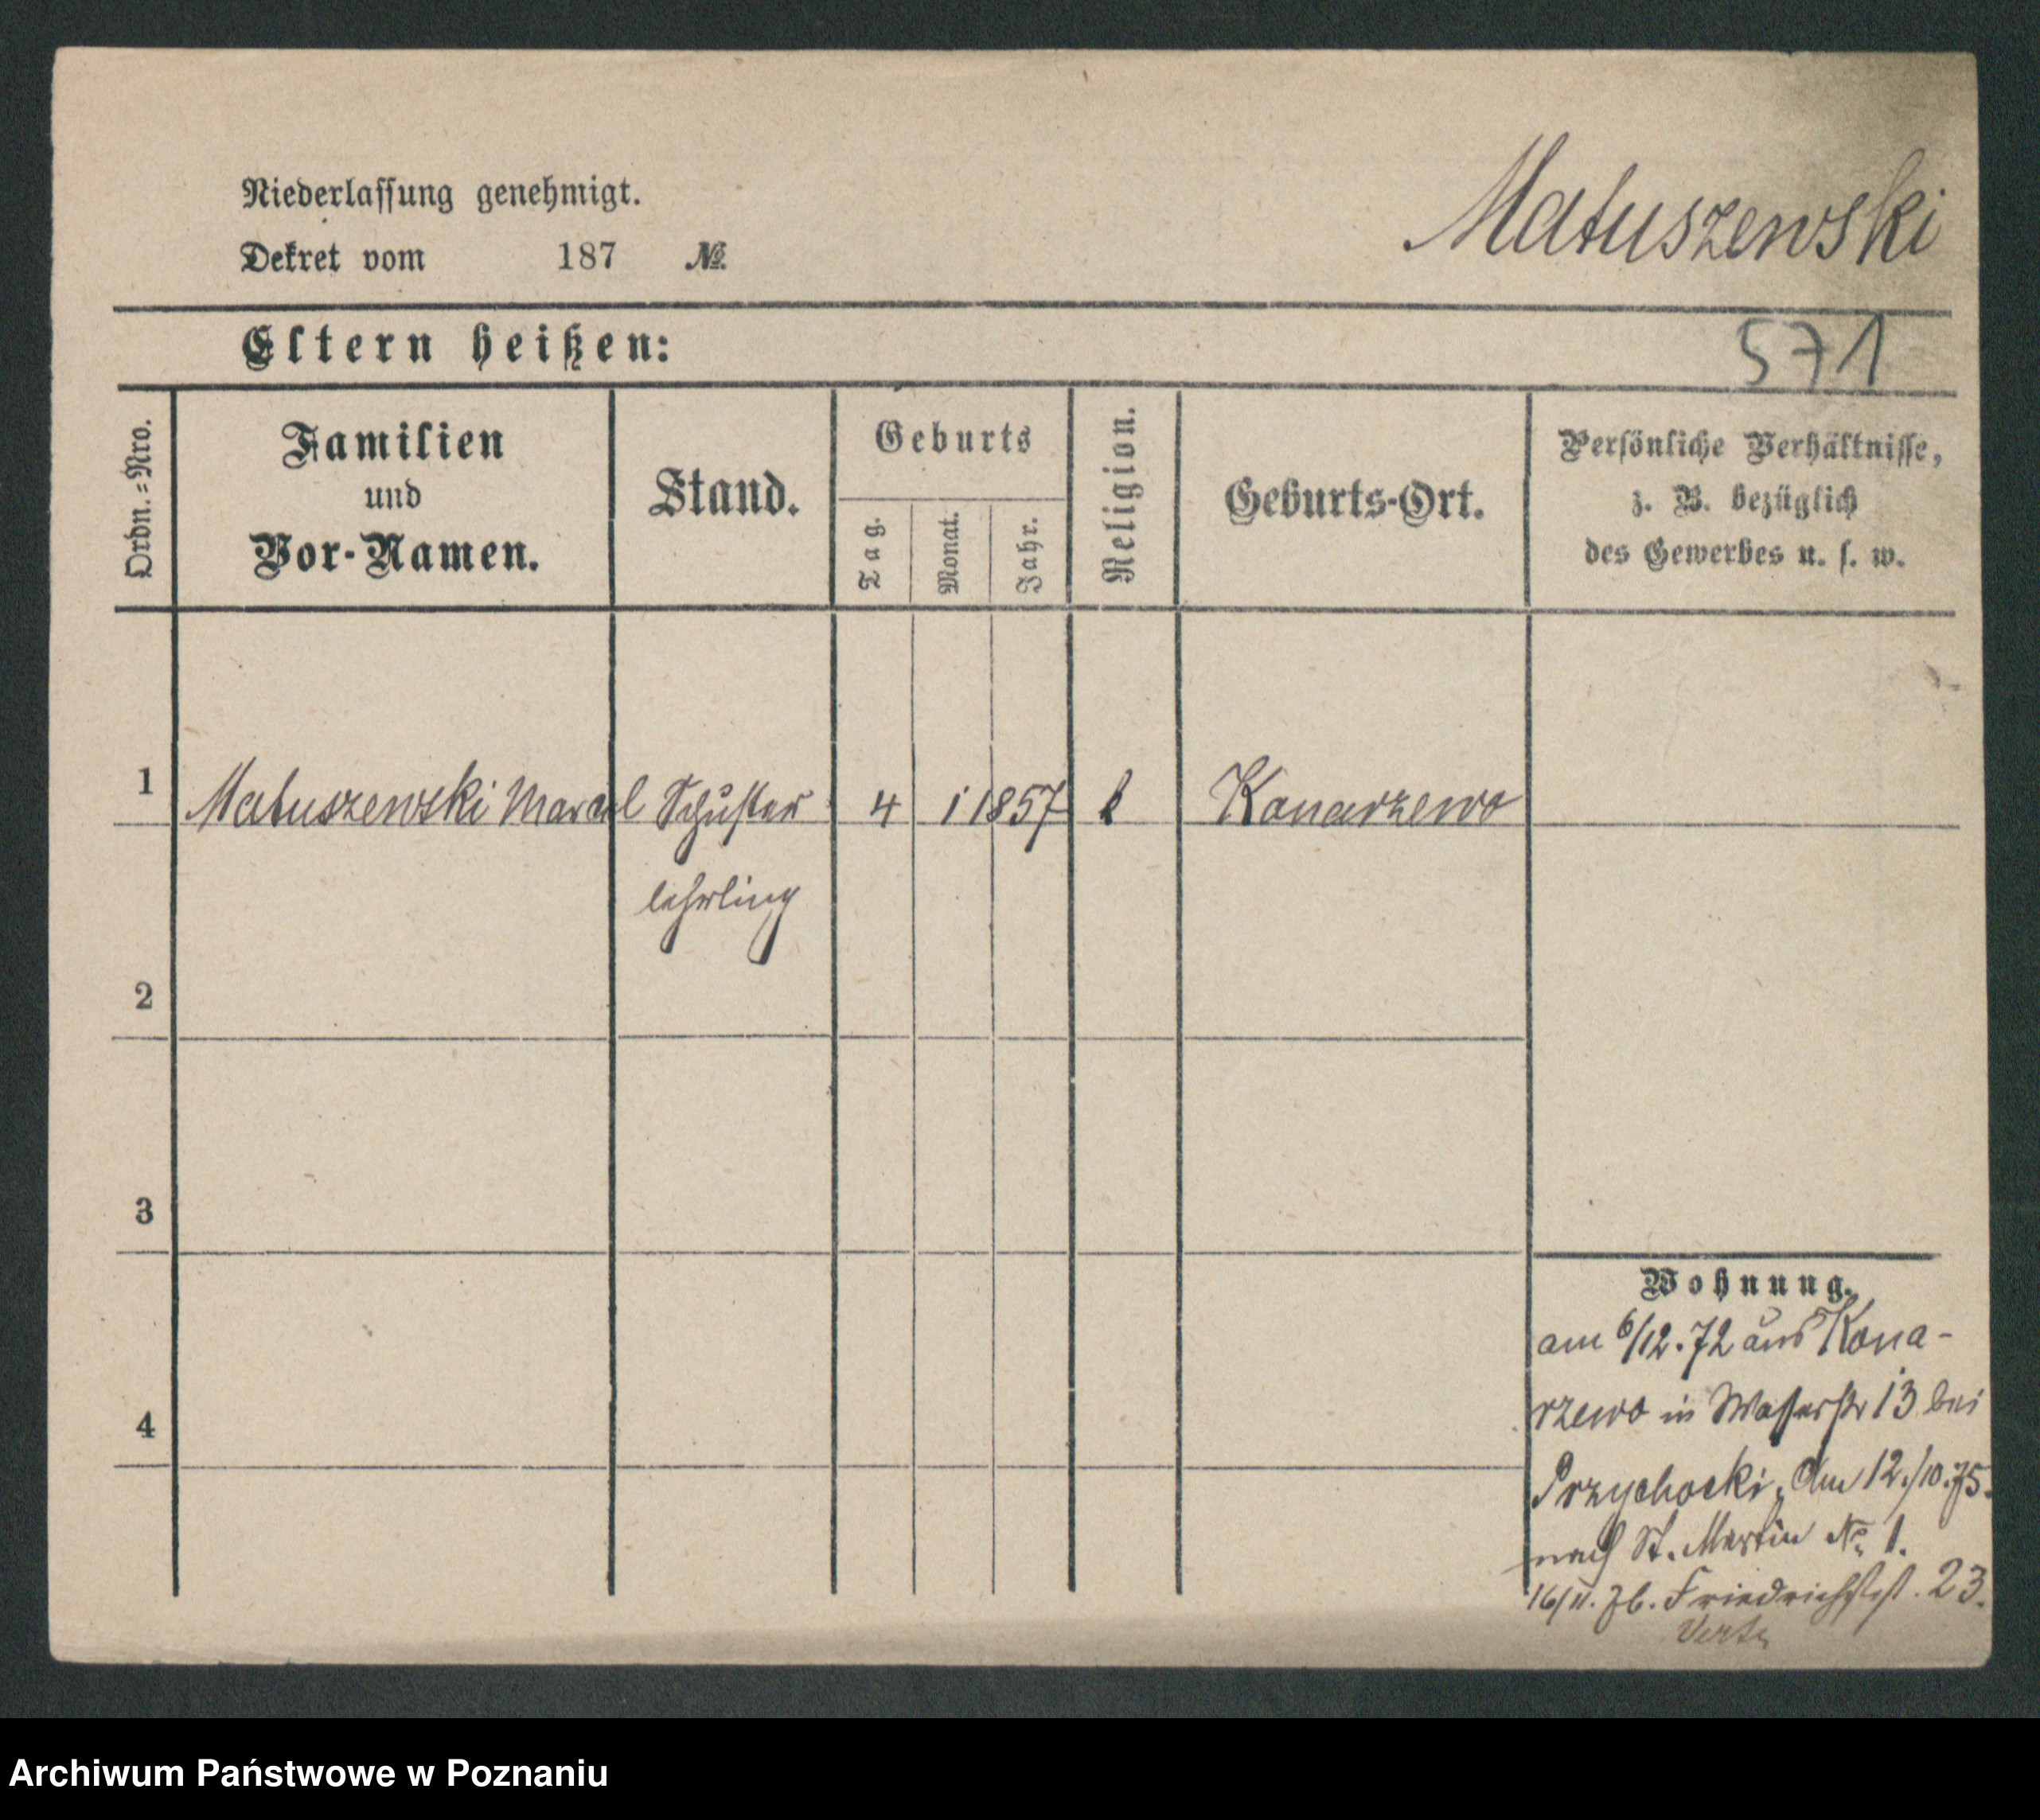 Niederlassung genehmigt.
Dekret vom 187 №
Matuszewski
Eltern heißen:
571
Ordn.=Nro.
Familien
und
Vor-Namen.
Stand.
Geburts
Tag.
Monat.
Jahr.
Religion.
Geburts-Ort.
Persönliche Verhältnisse,
z. B. bezüglich
des Gewerbes u. s. w.
1 Matuszewski Marcel Schuster 4 1 1857 k Konarzewo
lehrling
2
3
4
Wohnung.
am 6/12.72 aus Kona-
rzewo in Wasserstr 13 bei
Przychocki, Am 12./10.75.
nach St. Martin № 1.
16/11.76. Friedrichsst. 23.
Verte
Archiwum Państwowe w Poznaniu